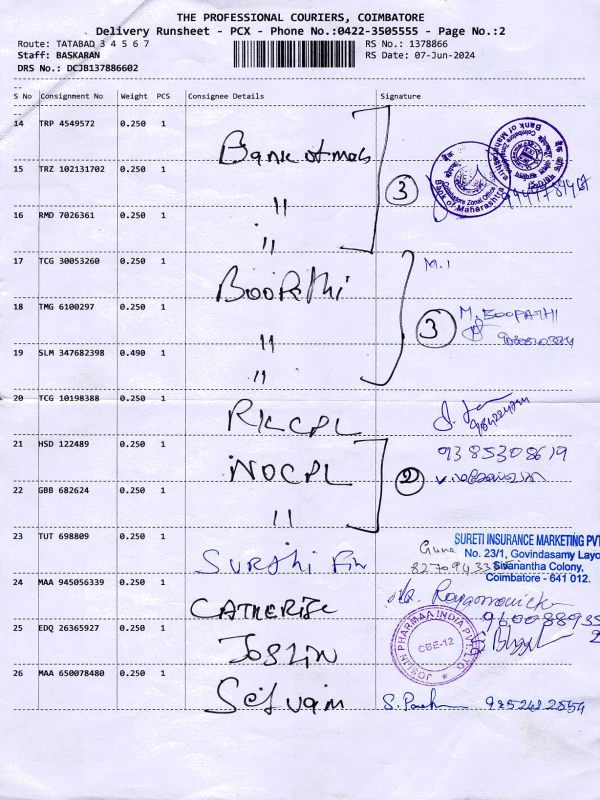 THE PROFESSIONAL COURIERS, COIMBATORE
Delivery Runsheet - PCX - Phone No.:0422-3505555 - Page No.:2
Route: TATABAD 3 4 5 6 7
RS No.: 1378866
Staff: BASKARAN
RS Date: 07-Jun-2024
DRS No.: DCJB137886602
S No Consignment No Weight PCS Consignee Details Signature
14 TRP 4549572 0.250 1
Bank of mah
15 TRZ 102131702 0.250 1
3
Coimbatore Zonal Office
Bank of Maharashtra
16 RMD 7026361 0.250 1
"
"
17 TCG 30053260 0.250 1
BOOPathi
M.1
18 TMG 6100297 0.250 1
3
M. BOOPATHI
"
19 SLM 347682398 0.490 1
"
20 TCG 10198388 0.250 1
RKCPL
21 HSD 122489 0.250 1
INOCPL
9385308619
2
22 GBB 682624 0.250 1
"
23 TUT 698809 0.250 1
Surthi Fin
Guna
SURETI INSURANCE MARKETING PVT
No. 23/1, Govindasamy Layo
Sivanantha Colony,
Coimbatore - 641 012.
24 MAA 945056339 0.250 1
CATHERISE
25 EDQ 26365927 0.250 1
JOSLIN
JOSLIN PHARMAA INDIA PVT LTD
CBE-12
26 MAA 650078480 0.250 1
Selvam